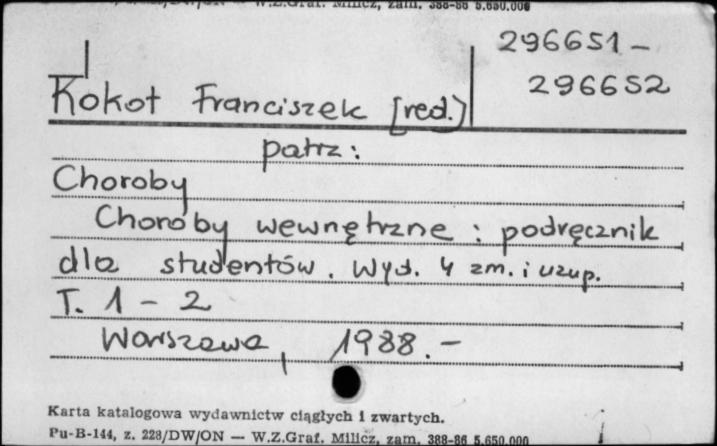 Pu-B-144, z. 228/DW/ON — W.Z.Graf. Milicz, zam. 388-86 5.650.000
296651-
296652
Kokot Franciszek [red.)
patrz:
Choroby
Choroby wewnętrzne : podręcznik
dla studentów. Wyd. 4 zm. i uzup.
T. 1 - 2
Warszawa, 1988.-
Karta katalogowa wydawnictw ciągłych i zwartych.
Pu-B-144, z. 228/DW/ON — W.Z.Graf. Milicz, zam. 388-86 5.650.000